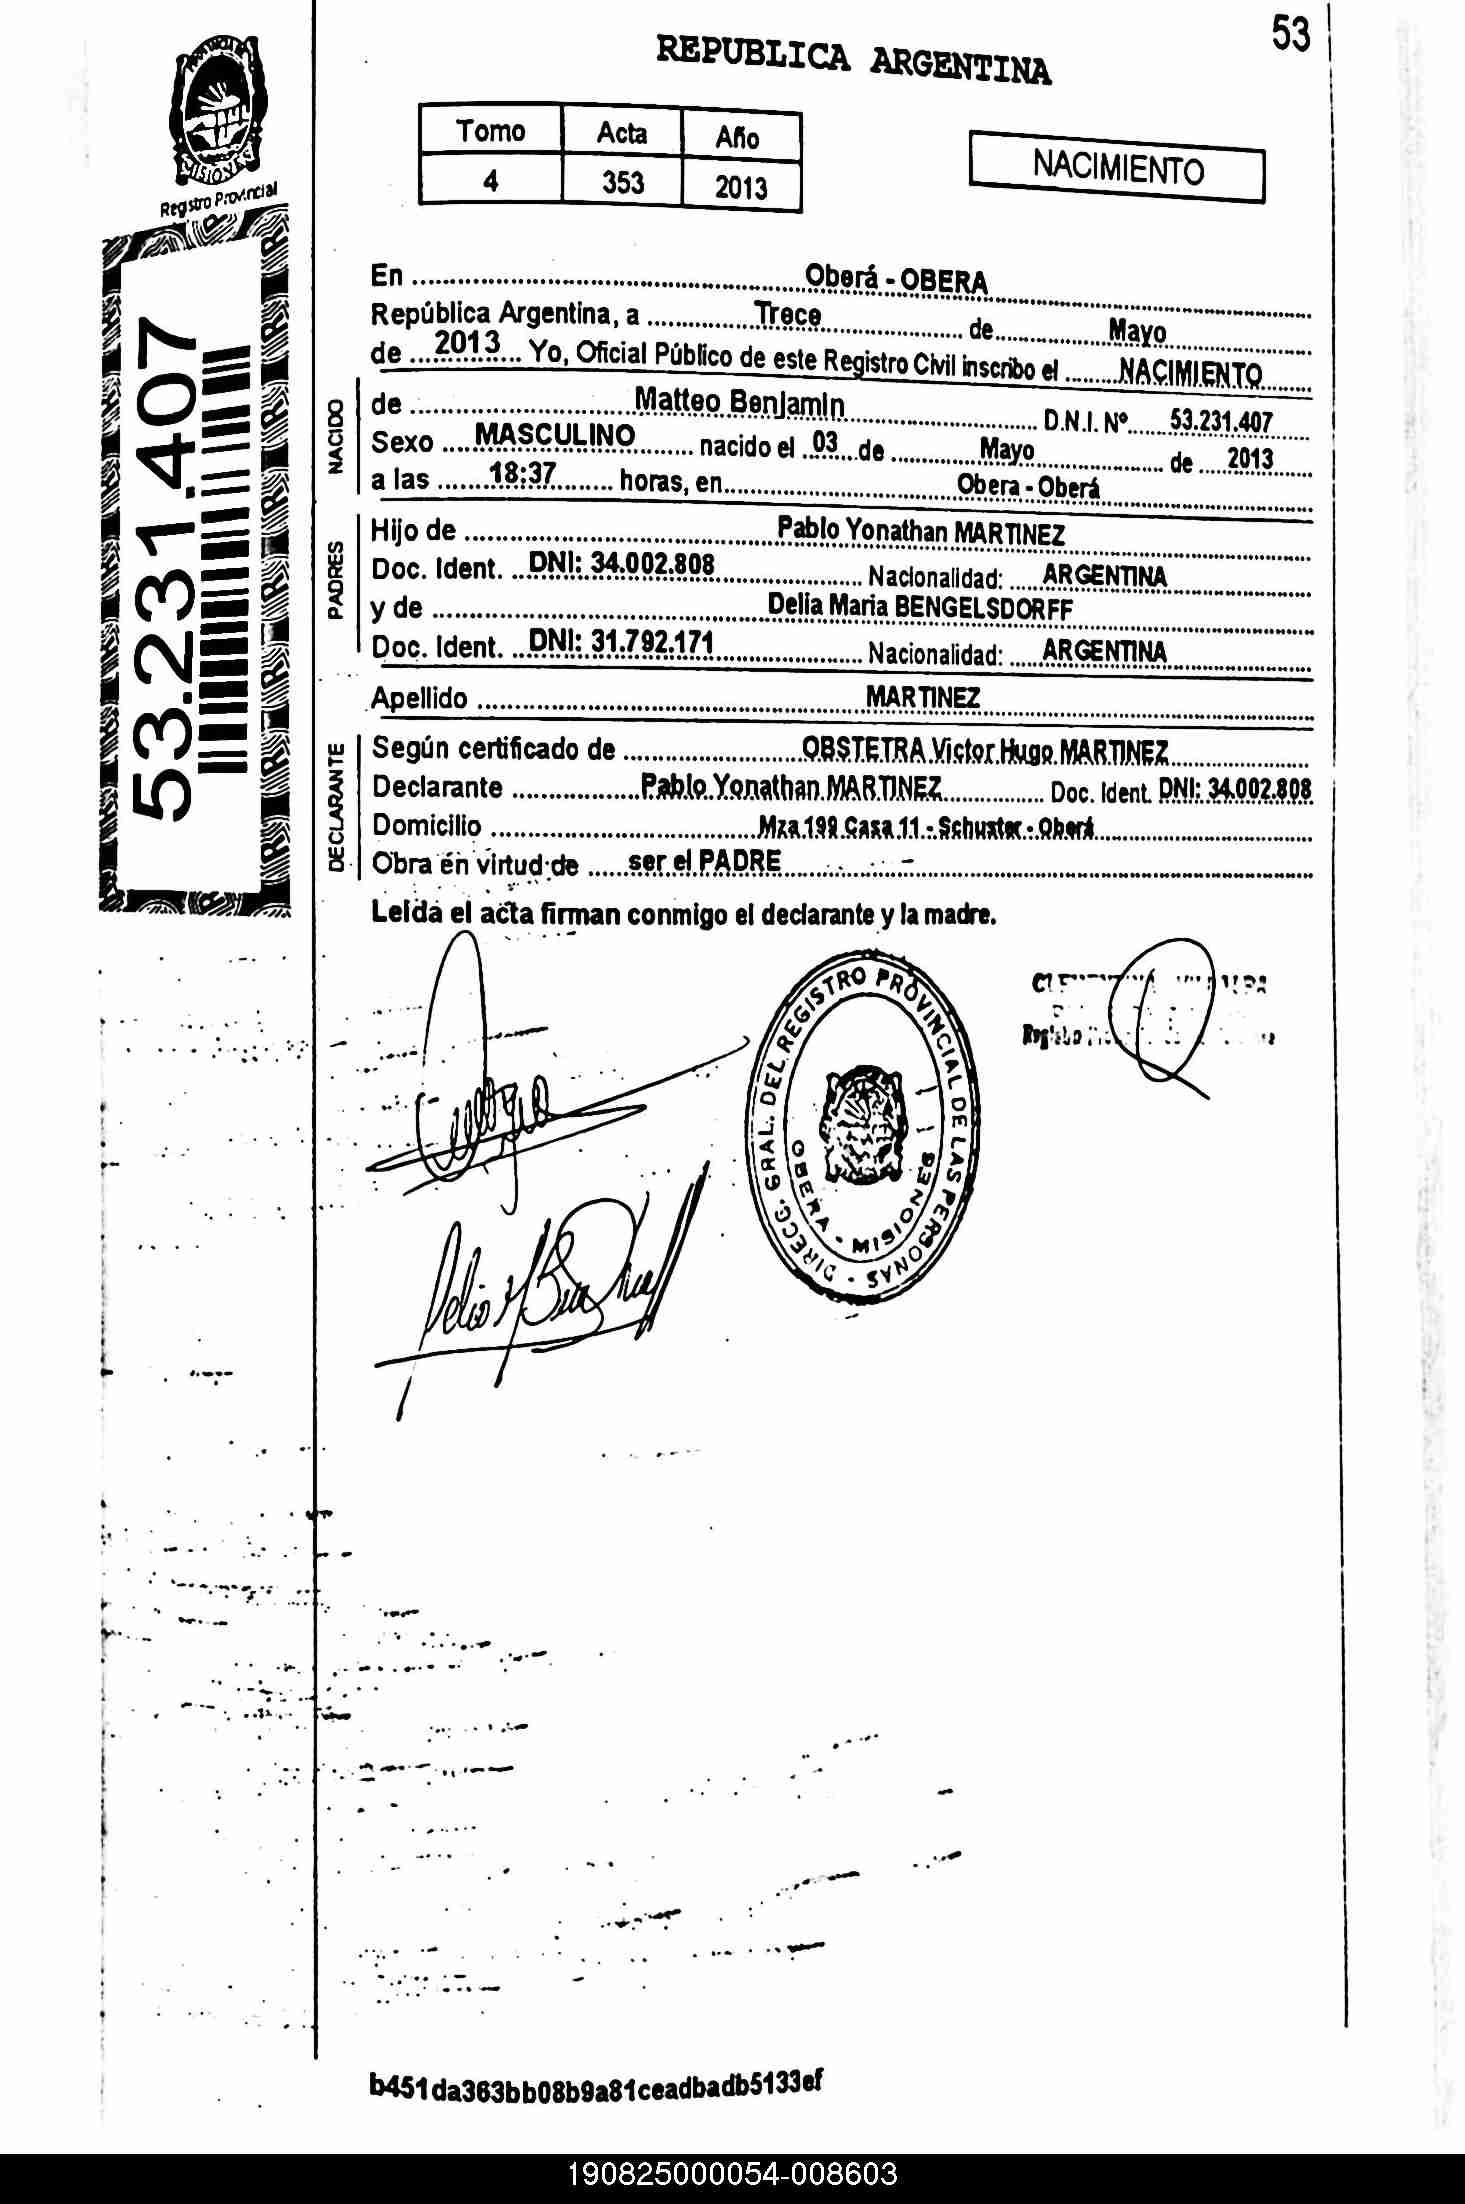 53
REPUBLICA ARGENTINA
PROVINCIA DE
MISIONES
Registro Provincial
Tomo Acta Año
4 353 2013
NACIMIENTO
53.231.407
En Oberá - OBERA
República Argentina, a Trece de Mayo
de 2013 Yo, Oficial Público de este Registro Civil inscribo el NACIMIENTO
NACIDO
de Matteo Benjamin D.N.I. Nº 53.231.407
Sexo MASCULINO nacido el 03 de Mayo de 2013
a las 18:37 horas, en Obera - Oberá
PADRES
Hijo de Pablo Yonathan MARTINEZ
Doc. Ident. DNI: 34.002.808 Nacionalidad: ARGENTINA
y de Delia Maria BENGELSDORFF
Doc. Ident. DNI: 31.792.171 Nacionalidad: ARGENTINA
Apellido MARTINEZ
DECLARANTE
Según certificado de OBSTETRA Victor Hugo MARTINEZ
Declarante Pablo Yonathan MARTINEZ Doc. Ident. DNI: 34.002.808
Domicilio Mza 199 Casa 11 - Schuster - Oberá
Obra en virtud de ser el PADRE
Leída el acta firman conmigo el declarante y la madre.
DIRECC. GRAL. DEL REGISTRO PROVINCIAL DE LAS PERSONAS -
OBERA - MISIONES
b451da363bb08b9a81ceadbadb5133ef
190825000054-008603